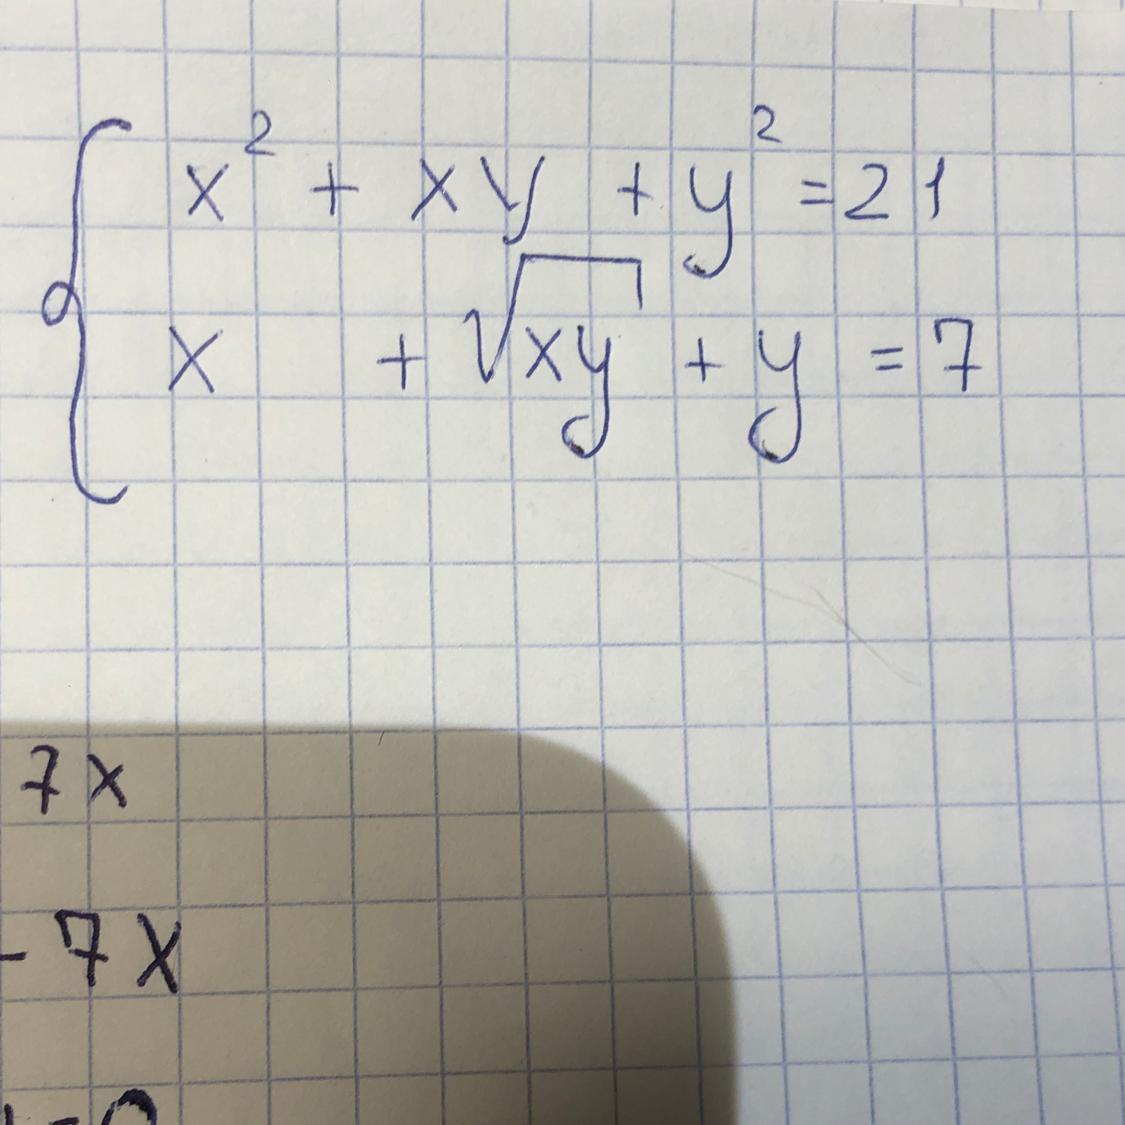 x² + xy + y² = 21
x + √xy + y = 7
7x
- 7x